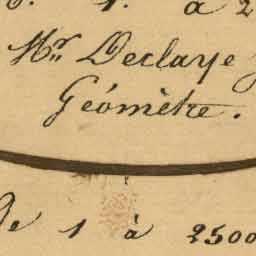 1. à 2
Mr Declaye
Géomètre.
de 1 à 2500